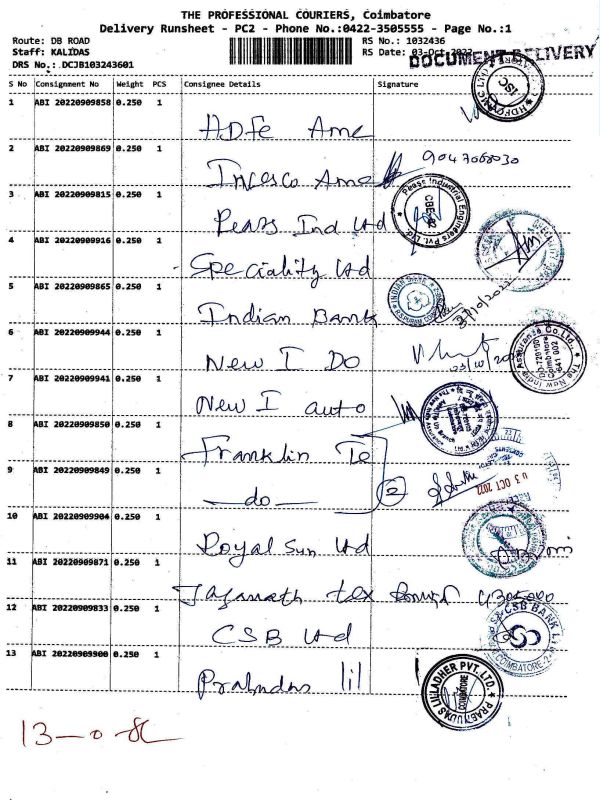 THE PROFESSIONAL COURIERS, Coimbatore
Delivery Runsheet - PC2 - Phone No.:0422-3505555 - Page No.:1
Route: DB ROAD RS No.: 1032436
Staff: KALIDAS RS Date: 03-Oct-2022
DRS No.: DCJB103243601 DOCUMENT DELIVERY
S No Consignment No Weight PCS Consignee Details Signature
1 ABI 20220909858 0.250 1
HDFC Amc
2 ABI 20220909869 0.250 1 9047068030
Invesco Amc
3 ABI 20220909815 0.250 1
Pears Ind Ltd
4 ABI 20220909916 0.250 1
Speciality Ltd
5 ABI 20220909865 0.250 1
Indian Bank
6 ABI 20220909944 0.250 1
New I DO
7 ABI 20220909941 0.250 1
New I auto
8 ABI 20220909850 0.250 1
Franklin Te
9 ABI 20220909849 0.250 1
do 2 03 OCT 2022
10 ABI 20220909904 0.250 1
Royal Sun Ltd
11 ABI 20220909871 0.250 1
Jaganath tex
12 ABI 20220909833 0.250 1
CSB Ltd CSB BANK COIMBATORE
13 ABI 20220909900 0.250 1
Prabudas lil
PRABHUDAS LILLADHER PVT. LTD. COIMBATORE
13-0-